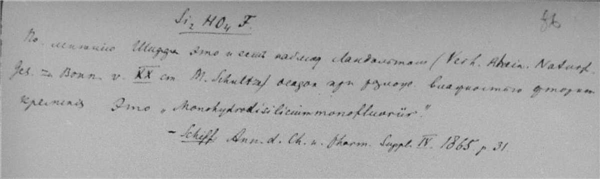 Si₂ HO₄ F
По мнению Шиффа это и есть наблюд. Ландольтом (Verh. Rhein. Naturf.
Ges. zu Bonn. v. XX ст. M. Schultze) осадок при влажностью фтор
кремния Это „Monohydrodisiliciummonofluorür.“
– Schiff Ann. d. Ch. u. Pharm. Suppl. IV. 1865. p. 31